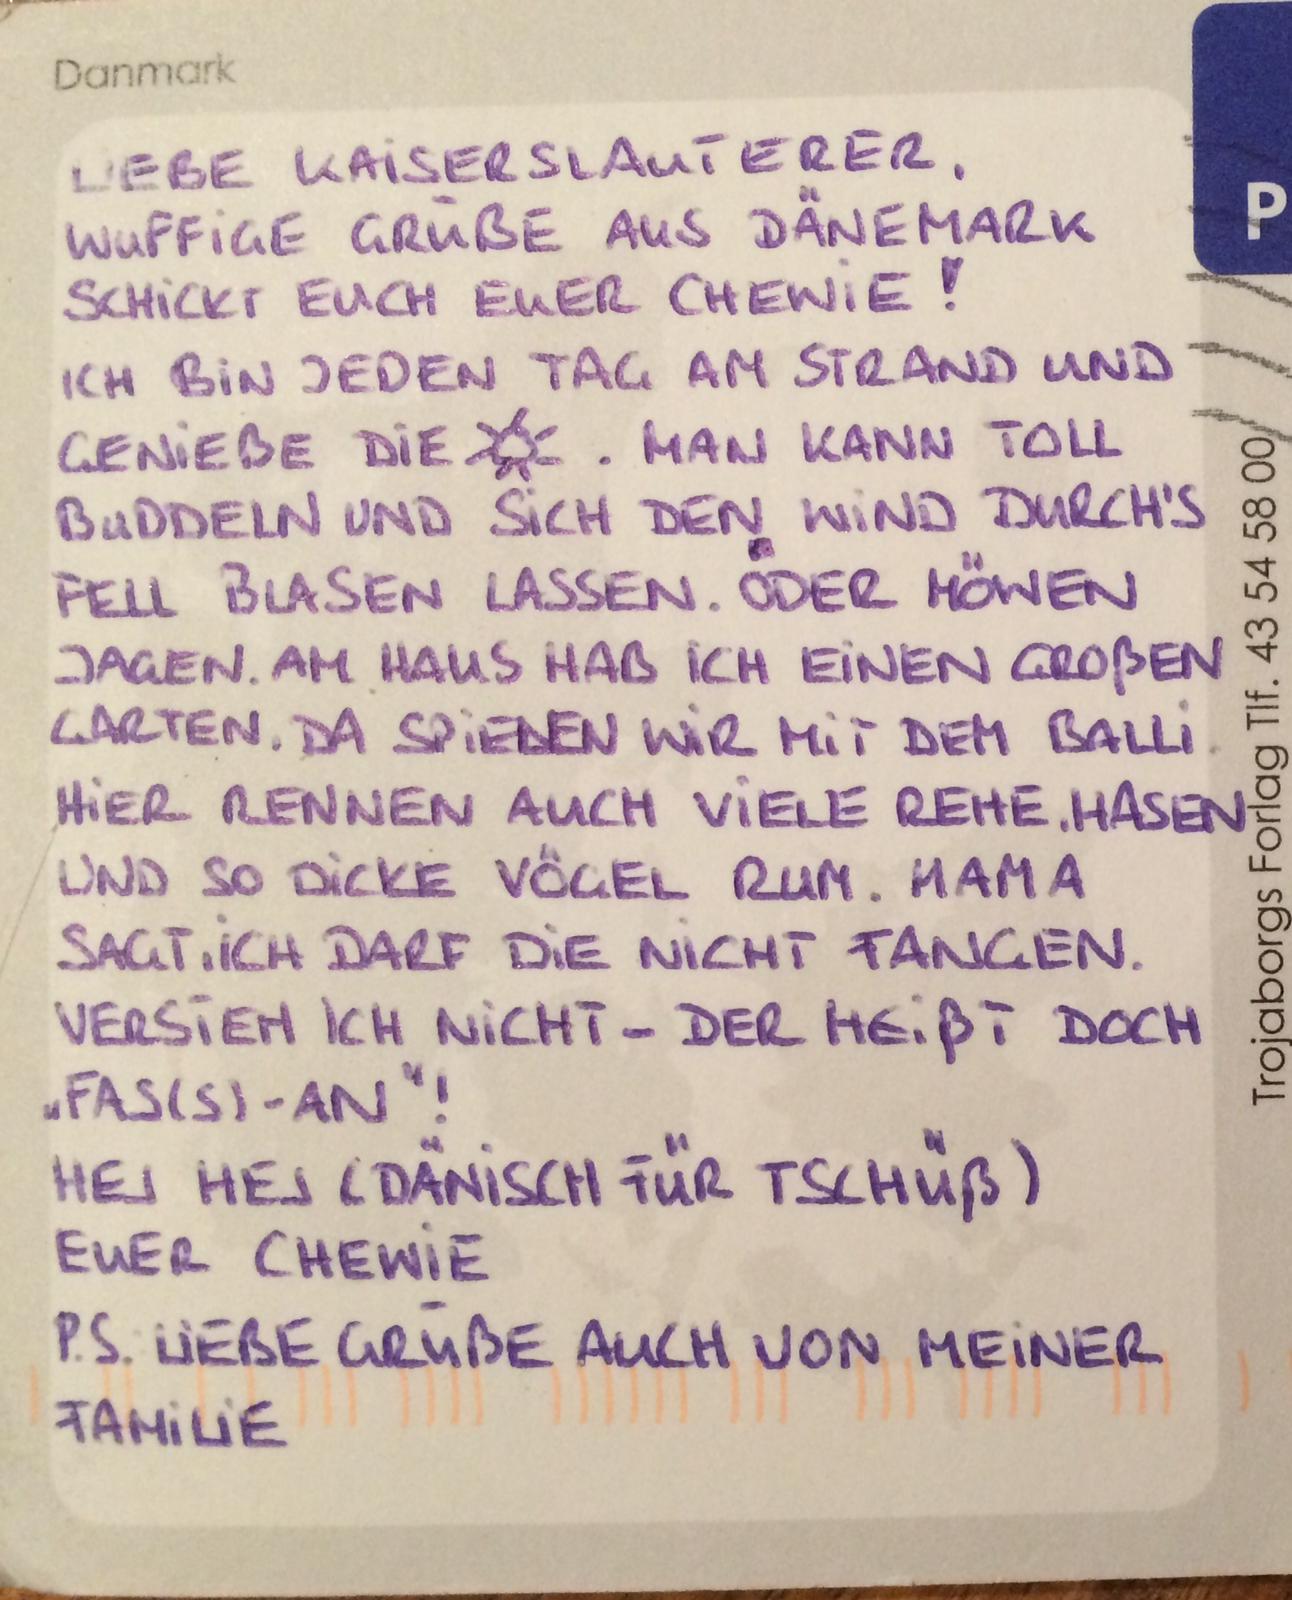 Danmark
LIEBE KAISERSLAUTERER,
WUFFIGE GRÜßE AUS DÄNEMARK
SCHICKT EUCH EUER CHEWIE!
ICH BIN JEDEN TAG AM STRAND UND
GENIEßE DIE ☼. MAN KANN TOLL
BUDDELN UND SICH DEN WIND DURCH'S
FELL BLASEN LASSEN. ODER MÖWEN
JAGEN. AM HAUS HAB ICH EINEN GROßEN
GARTEN. DA SPIELEN WIR MIT DEM BALLI.
HIER RENNEN AUCH VIELE REHE, HASEN
UND SO DICKE VÖGEL RUM. MAMA
SAGT, ICH DARF DIE NICHT FANGEN.
VERSTEH ICH NICHT - DER HEIßT DOCH
„FAS(S)-AN"!
HEJ HEJ (DÄNISCH FÜR TSCHÜß)
EUER CHEWIE
P.S. LIEBE GRÜßE AUCH VON MEINER
FAMILIE
P
Trojaborgs Forlag Tlf. 43 54 58 00